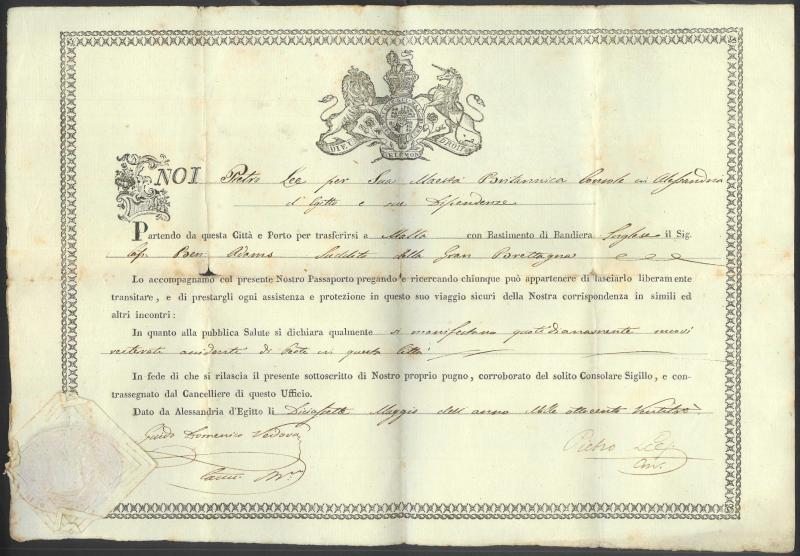 DIEU ET MON DROIT
NOI Pietro Lee per Sua Maestà Britannica Console in Alessandria
d'Egitto e sue Dipendenze
Partendo da questa Città e Porto per trasferirsi a Malta con Bastimento di Bandiera Inglese il Sig.
Adams Suddito della Gran Brettagna
Lo accompagnamo col presente Nostro Passaporto pregando e ricercando chiunque può appartenere di lasciarlo liberamente
transitare, e di prestargli ogni assistenza e protezione in questo suo viaggio sicuri della Nostra corrispondenza in simili ed
altri incontri:
In quanto alla pubblica Salute si dichiara qualmente si manifestano quotidianamente nuovi
reiterati accidenti di Peste in questa Città
In fede di che si rilascia il presente sottoscritto di Nostro proprio pugno, corroborato del solito Consolare Sigillo, e con-
trassegnato dal Cancelliere di questo Ufficio.
Dato da Alessandria d'Egitto li Diciasette Maggio dell anno Mille ottocento Ventitrè
Guido Domenico Vedova
Pietro Lee